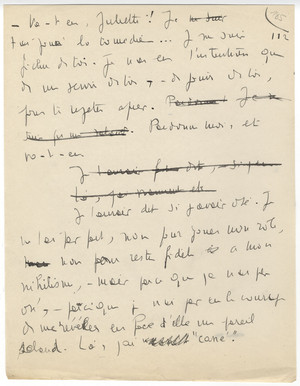 - Va-t-en, Juliette! Je
t'ai joué la comédie... Je me suis
fichu de toi. Je n'ai eu l'intention que
de me servir de toi, - de jouir de toi,
pour te rejeter après. Pardonne moi, et
va-t-en
Je l'aurais dit si j'avais osé. Je
ne l'ai pas fait, non pour jouer mon rôle,
non pour rester fidèle à mon
nihilisme, - mais parce que je n'ai pas
osé, - parce que je n'ai pas eu le courage
de me révéler en face d'elle un pareil
salaud. Là, j'ai "cané".
112